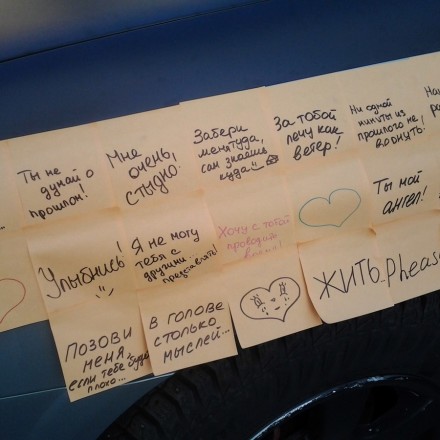 Ты не
думай о
прошлом!
Мне
очень,
стыдно.
Забери
меня туда,
сам знаешь
куда!!
За тобой
лечу как
ветер!
Ни одной
минуты из
прошлого не
вернуть.
На
Улыбнись!
Я не могу
тебя с
другими.
представлять!
Хочу с тобой
проводить
Ты мой
ангел!
ПОЗОВИ
МЕНЯ
если тебе будет
плохо...
В ГОЛОВЕ
СТОЛЬКО
МЫСЛЕЙ...
ЖИТЬ.